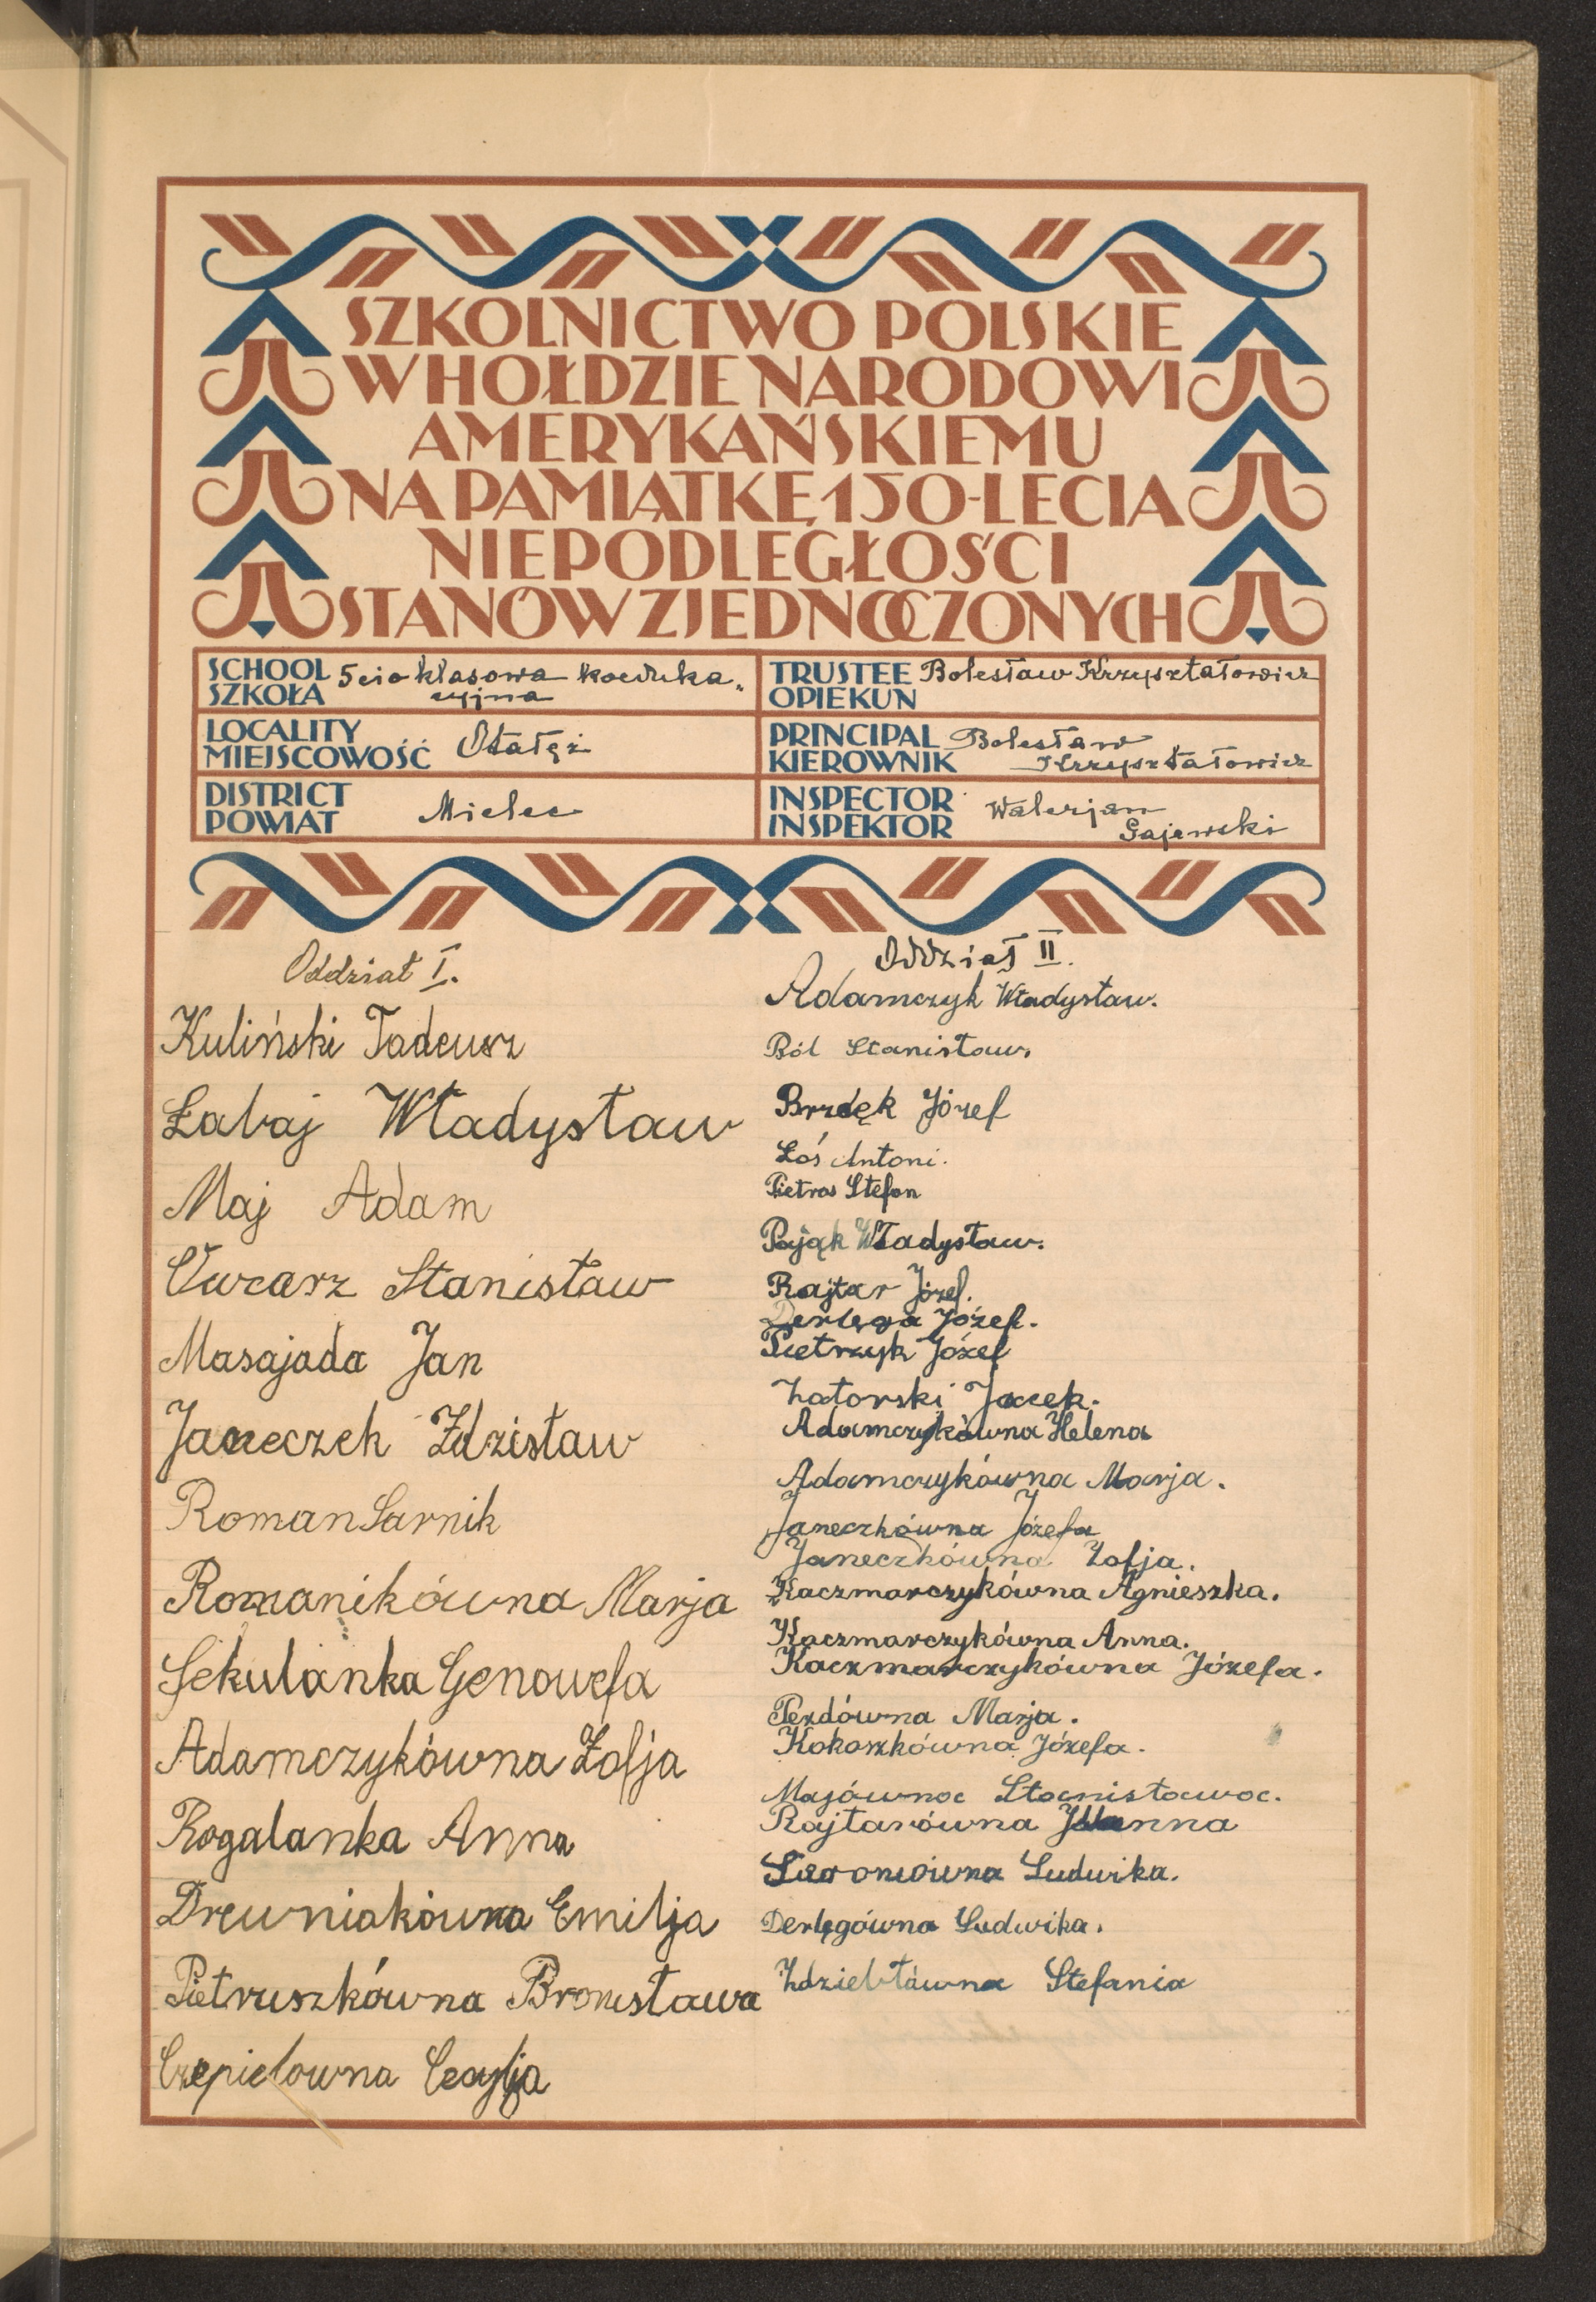 SZKOLNICTWO POLSKIE
W HOŁDZIE NARODOWI
AMERYKAŃSKIEMU
NA PAMIĄTKĘ 150-LECIA
NIEPODLEGŁOŚCI
STANÓW ZJEDNOCZONYCH
SCHOOL
SZKOŁA
5cio klasowa koeduka„
cyjna
TRUSTEE
OPIEKUN
Bolesław Krzyształowicz
LOCALITY
MIEJSCOWOŚĆ
Otałęż
PRINCIPAL
KIEROWNIK
Bolesław
Krzyształowicz
DISTRICT
POWIAT
Mielec
INSPECTOR
INSPEKTOR
Walerjan
Gajewski
Oddział I.
Kuliński Tadeusz
Łabaj Władysław
Maj Adam
Owcarz Stanisław
Masajada Jan
Janeczek Zdzisław
Roman Sarnik
Romanikówna Marja
Sekulanka Genowefa
Adamczykówna Zofja
Rogalanka Anna
Drewniakówna Emilja
Pietruszkówna Bronisława
Czepielowna Cecylja
Oddział II.
Adamczyk Władysław.
Ból Stanisław.
Brzdęk Józef
Łoś Antoni.
Pietras Stefan
Pająk Władysław.
Rajtar Józef.
Derlęga Józef.
Pietrzyk Józef
Zatorski Jacek.
Adamczykówna Helena
Adamczykówna Marja.
Janeczkówna Józefa
Janeczkówna Zofja.
Kaczmarczykówna Agnieszka.
Kaczmarczykówna Anna.
Kaczmarczykówna Józefa.
Pezdówna Marja.
Kokoszkówna Józefa.
Majówna Stanisława.
Rajtarówna
Ludwika.
Derlęgówna Ludwika.
Zdziebłówna Stefania